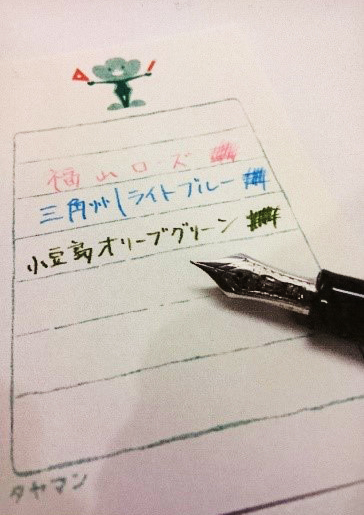 福山ローズ
三角州ライトブルー
小豆島オリーブグリーン
タヤマン